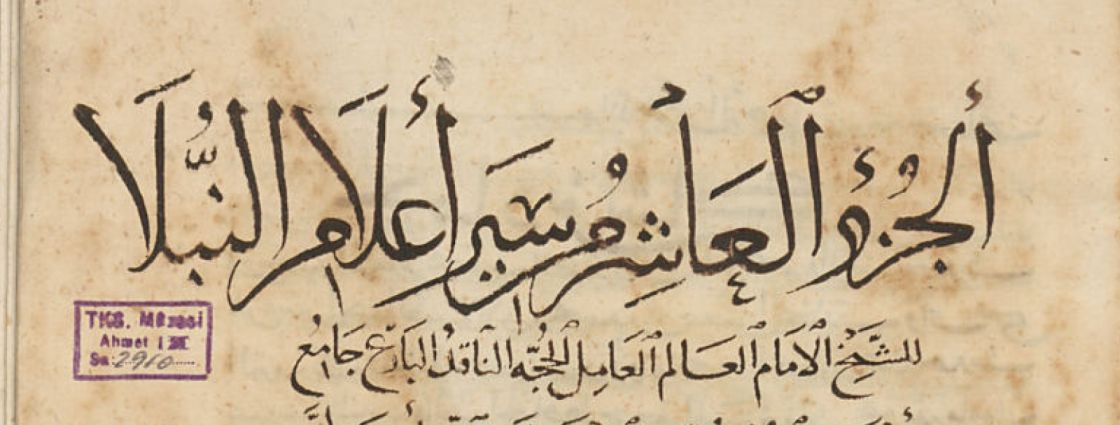 ألجُزؤ ألعَاشِر مُن سَير أعلَام النُبّلَا
للشَّيخ الامَام العَالم العَامِل الحُجّه الناقد البَارع جَامع
TKS. Müzesi
Ahmet III
Sa. 2910